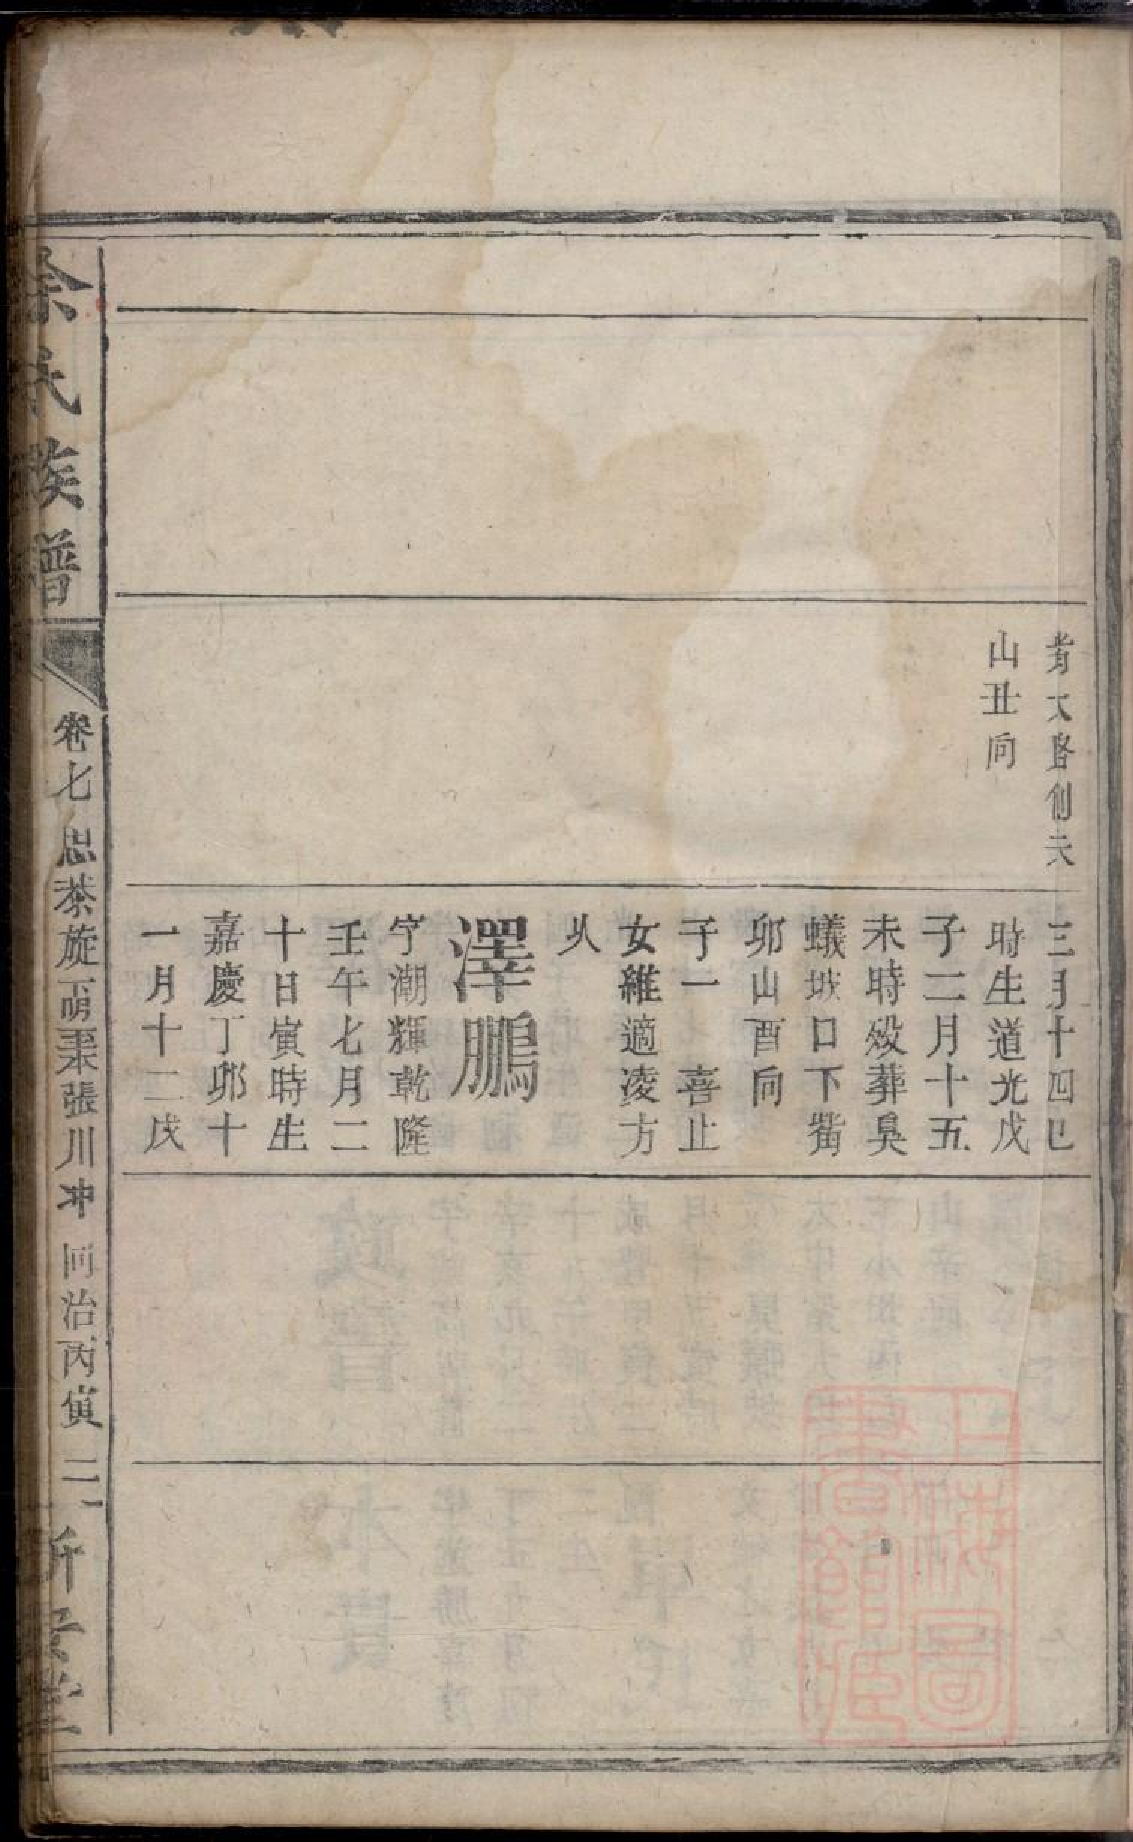 背大路側未
山丑向
三月十四巳
時生道光戊
子二月十五
未時歿葬臭
蟻坡口下嘴
卯山酉向
子一 喜止
女維適凌方
火
澤鵬
字潮輝乾隆
壬午七月二
十日寅時生
嘉慶丁卯十
一月十二戌
徐氏族譜
卷七
張川冲
同治丙寅
上海圖
書館藏